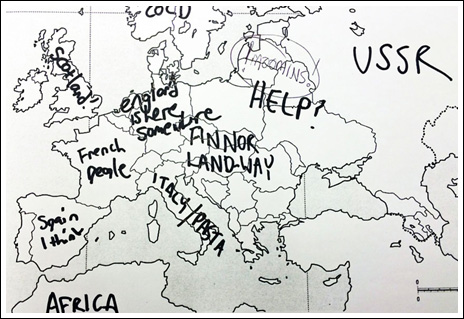 COLD
USSR
Scotland?
HELP?
england
is here
somewhere
FINNOR
LAND-WAY
French
people
ITALY/PASTA
Spain
I think
AFRICA
0